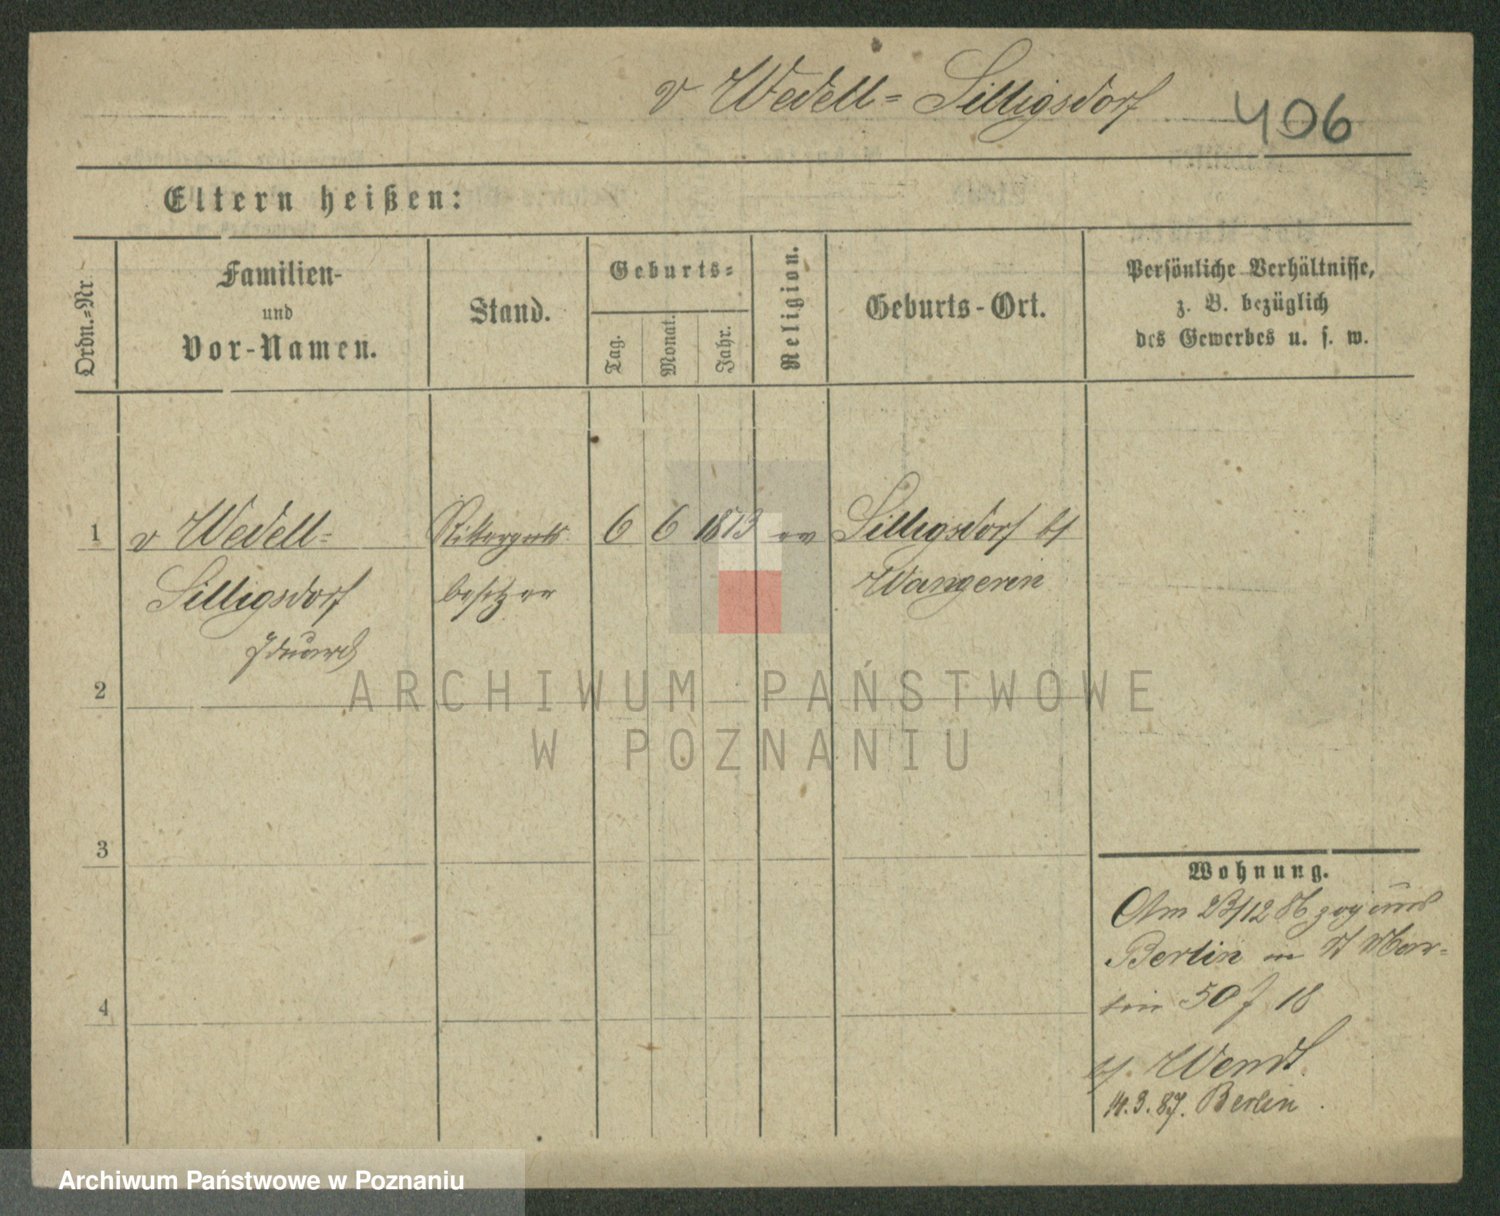 v Wedell= Silligsdorf 406
Eltern heißen:
Ordn.=Nr
Familien-
und
Vor-Namen.
Stand.
Geburts=
Tag.
Monat.
Jahr.
Religion.
Geburts-Ort.
Persönliche Verhältnisse,
z. B. bezüglich
des Gewerbes u. s. w.
1 v Wedell= Ritterguts 6 6 1813 ev Silligsdorf b/
Silligsdorf besitzer Wangerin
Eduard
2
3
4
Wohnung.
Am 23/12 86 zog aus
Berlin in St Mar=
tin 50 f 18
b/. Wendt.
14.3.87. Berlin.
ARCHIWUM PAŃSTWOWE
W POZNANIU
Archiwum Państwowe w Poznaniu